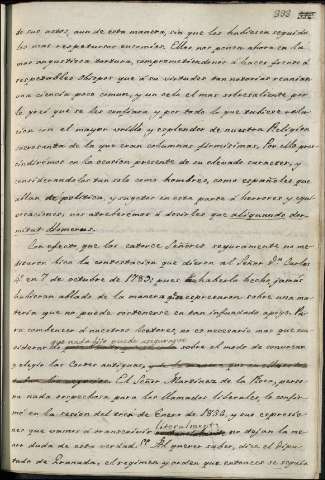 332
de sus actos, aun de esta manera, sin que los hubiesen seguido
los mas respetuosos encomios. Ellos nos ponen ahora en la
mas angustiosa tortura, comprometiendonos á hacer frente á
respetables Obispos que á su virtudes tan notorias reunian
una ciencia poco comun, y un celo el mas sobresaliente por
la grei que se les confiara y por todo lo que tubiese rela
cion con el mayor brillo y esplendor de nuestra Religion
sacrosanta de la que eran columnas firmisimas. Por ello pres
cindiremos en la ocasion presente de su elevado caracter, y
considerandolos tan solo como hombres, como españoles que
ablan de politica, y sugetos en esta parte á herrores y equi
vocaciones, nos atreberemos á decirles que aliquando dor
mitat Homerus.
Con efecto que los catorce Señores seguramente no me
ditaron bien la contestacion que dieron al Señor Dn. Carlos
4º en 7 de octubre de 1789: pues á haberlo hecho jamas
hubieran ablado de la manera que espresaron sobre una ma
teria que no puede sostenerse en tan infundado apoyo. Pa
ra combencer á nuestros lectores, no es necesario mas que con
siderar
que nada hubo puede asegurarse
sobre el modo de convocar
y elegir las Cortes antiguas,
El Señor Martinez de la Rosa, perso
na nada sospechosa para los llamados liberales, lo confir
mó en la sesion del de Enero de 1838, y sus espresio
nes que vamos á transcribir
literalmente
no dejan la me
nor duda de esta verdad. "Al querer saber, dice el Dipu
tado de Granada, el regimen y orden que entonces se seguia